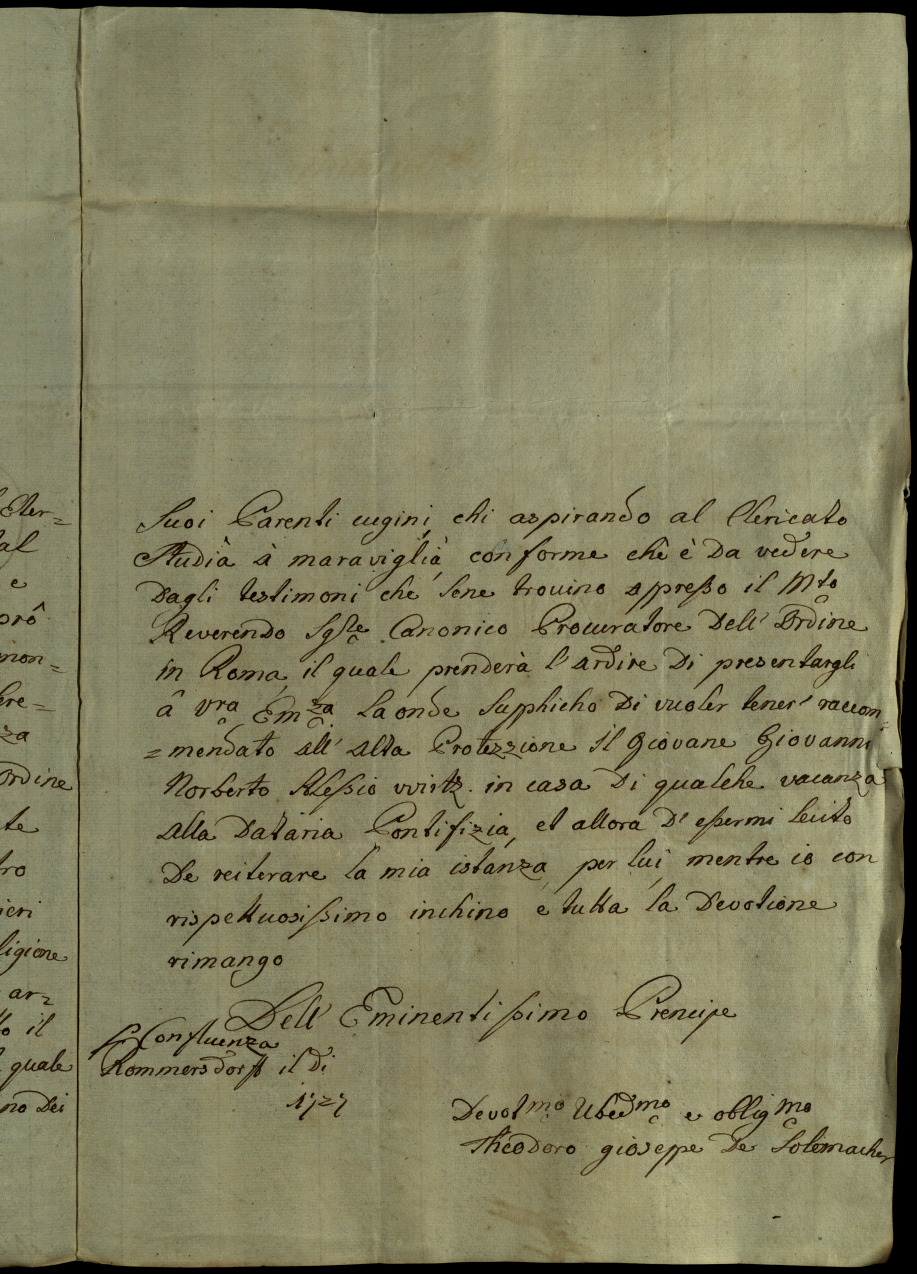 Eter=
tal
e
prô
mon=
ere=
za
Ordine
te
tro
ieri
ligione
ar=
to il
quale
no Dei
Suoi Parenti cugini, chi aspirando al Clericato
studià à maraviglià, conforme chê è da vedere
dagli testimoni che sene trovino appresso il Mto
Reverendo Sgre Canonico Procuratore dell' Ordine
in Roma, il quale prenderà l'ardire di presentargli
â vra Emza. La onde supplicho di vuoler tener' raccom=
=mendato all' alta Protezzione il Giovane Giovanni
Norberto Alessio wirtz. in casa di qualche vacanza
alla Dataria Pontifizia, et allora d'essermi lecito
de reiterare la mia istanza per lui, mentre io con
rispettuosissimo inchino e tutta la devotione
rimango
Dell' Eminentissimo Prencipe
Confluenza
Rommersdorff il di
1727
Devotmo Ubedmo e obligmo
Theodoro gioseppe de Solemacher